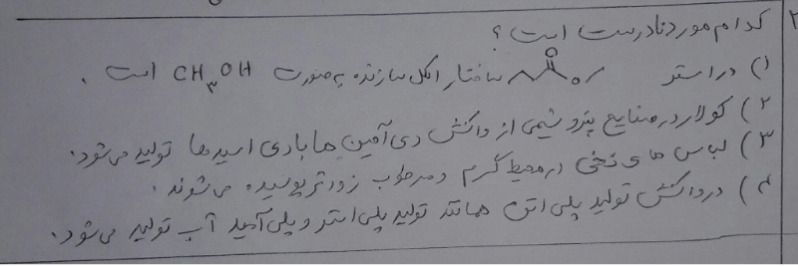 ۲
کدام مورد نادرست است؟
۱) در استر O O ساختار الکل سازنده به صورت CH₃OH است.
۲) کولار در صنایع پتروشیمی از واکنش دی آمین ها با دی اسید ها تولید می شود.
۳) لباس های نخی در محیط گرم و مرطوب زودتر پوسیده می شوند.
۴) در واکنش تولید پلی اتن همانند تولید پلی استر و پلی آمید آب تولید می شود.